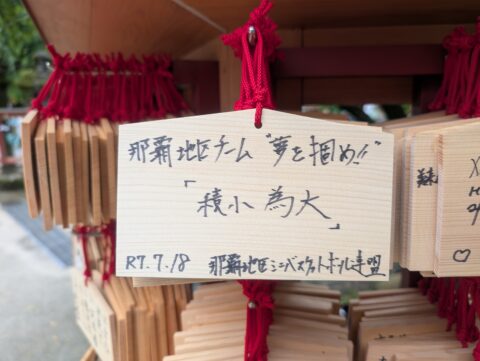 那覇地区チーム“夢を掴め!!”
「積小為大」
R7.7.18 那覇地区ミニバスケットボール連盟